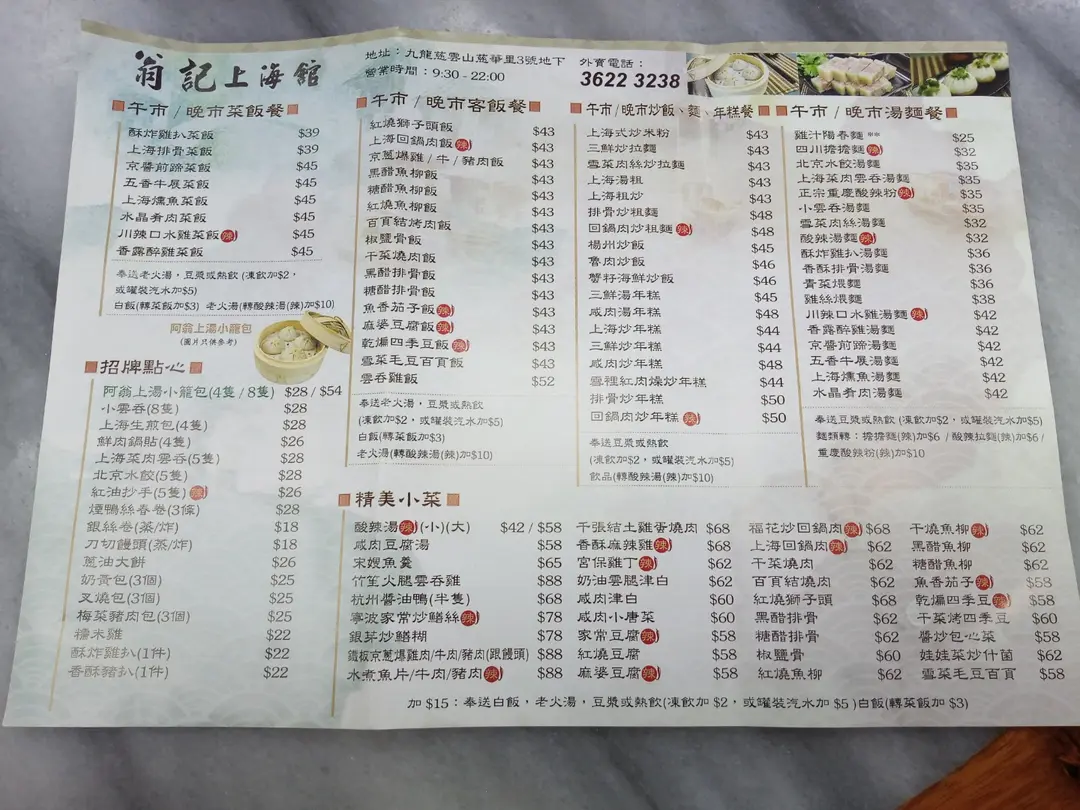 翁記上海館
地址：九龍慈雲山蕙華里3號地下
營業時間：9:30 - 22:00
外賣電話：
3622 3238
午市 / 晚市菜飯餐
酥炸雞扒菜飯 $39
上海排骨菜飯 $39
京醬前蹄菜飯 $45
五香牛展菜飯 $45
上海燻魚菜飯 $45
水晶肴肉菜飯 $45
川辣口水雞菜飯(辣) $45
香露醉雞菜飯 $45
奉送老火湯，豆漿或熱飲 (凍飲加$2，
或罐裝汽水加$5)
白飯(轉菜飯加$3) 老火湯(轉酸辣湯(辣)加$10)
阿翁上湯小籠包
(圖片只供參考)
招牌點心
阿翁上湯小籠包(4隻 / 8隻) $28 / $54
小雲吞(8隻) $28
上海生煎包(4隻) $28
鮮肉鍋貼(4隻) $26
上海菜肉雲吞(5隻) $28
北京水餃(5隻) $28
紅油抄手(5隻)(辣) $26
煙鴨絲春卷(3條) $28
銀絲卷(蒸/炸) $18
刀切饅頭(蒸/炸) $18
蔥油大餅 $26
奶黃包(3個) $25
叉燒包(3個) $25
梅菜豬肉包(3個) $25
糯米雞 $22
酥炸雞扒(1件) $22
香酥豬扒(1件) $22
午市 / 晚市客飯餐
紅燒獅子頭飯 $43
上海回鍋肉飯(辣) $43
京蔥爆雞 / 牛 / 豬肉飯 $43
黑醋魚柳飯 $43
糖醋魚柳飯 $43
紅燒魚柳飯 $43
百頁結烤肉飯 $43
椒鹽骨飯 $43
干菜燒肉飯 $43
黑醋排骨飯 $43
糖醋排骨飯 $43
魚香茄子飯(辣) $43
麻婆豆腐飯(辣) $43
乾煸四季豆飯(辣) $43
雪菜毛豆百頁飯 $43
雲吞雞飯 $52
奉送老火湯，豆漿或熱飲
(凍飲加$2，或罐裝汽水加$5)
白飯(轉菜飯加$3)
老火湯(轉酸辣湯(辣)加$10)
午市/晚市炒飯、麵、年糕餐
上海式炒米粉 $43
三鮮炒拉麵 $43
雪菜肉絲炒拉麵 $43
上海湯粗 $43
上海粗炒 $43
排骨炒粗麵 $48
回鍋肉炒粗麵(辣) $48
楊州炒飯 $45
魯肉炒飯 $46
蟹籽海鮮炒飯 $46
三鮮湯年糕 $45
咸肉湯年糕 $48
上海炒年糕 $44
三鮮炒年糕 $44
咸肉炒年糕 $48
雪裡紅肉燥炒年糕 $44
排骨炒年糕 $50
回鍋肉炒年糕(辣) $50
奉送豆漿或熱飲
(凍飲加$2，或罐裝汽水加$5)
飲品(轉酸辣湯(辣)加$10)
午市 / 晚市湯麵餐
雞汁陽春麵 $25
四川擔擔麵(辣) $32
北京水餃湯麵 $35
上海菜肉雲吞湯麵 $35
正宗重慶酸辣粉(辣) $35
小雲吞湯麵 $35
雪菜肉絲湯麵 $32
酸辣湯麵(辣) $32
酥炸雞扒湯麵 $36
香酥排骨湯麵 $36
青菜煨麵 $36
雞絲煨麵 $38
川辣口水雞湯麵(辣) $42
香露醉雞湯麵 $42
京醬前蹄湯麵 $42
五香牛展湯麵 $42
上海燻魚湯麵 $42
水晶肴肉湯麵 $42
奉送豆漿或熱飲 (凍飲加$2，或罐裝汽水加$5)
麵類轉：擔擔麵(辣)加$6 / 酸辣拉麵(辣)加$6 /
重慶酸辣粉(辣)加$10
精美小菜
酸辣湯(辣)(小)(大) $42 / $58
咸肉豆腐湯 $58
宋嫂魚羹 $65
竹笙火腿雲吞雞 $88
杭州醬油鴨(半隻) $68
寧波家常炒鱔絲(辣) $78
銀芽炒鱔糊 $78
鐵板京蔥爆雞肉/牛肉/豬肉(跟饅頭) $88
水煮魚片/牛肉/豬肉(辣) $88
千張結土雞蛋燒肉 $68
香酥麻辣雞(辣) $68
宮保雞丁(辣) $62
奶油雲腿津白 $62
咸肉津白 $60
咸肉小唐菜 $60
家常豆腐(辣) $58
紅燒豆腐 $58
麻婆豆腐(辣) $58
福花炒回鍋肉(辣) $68
上海回鍋肉(辣) $62
干菜燒肉 $62
百頁結燒肉 $62
紅燒獅子頭 $68
黑醋排骨 $62
糖醋排骨 $62
椒鹽骨 $60
紅燒魚柳 $62
干燒魚柳(辣) $62
黑醋魚柳 $62
糖醋魚柳 $62
魚香茄子(辣) $58
乾煸四季豆(辣) $58
干菜烤四季豆 $60
醬炒包心菜 $58
娃娃菜炒什菌 $62
雪菜毛豆百頁 $58
加 $15：奉送白飯，老火湯，豆漿或熱飲(凍飲加 $2，或罐裝汽水加 $5 )白飯(轉菜飯加 $3)